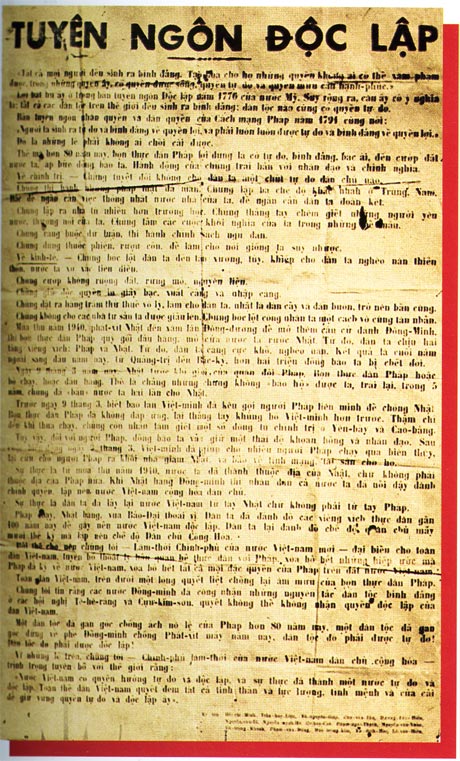 TUYÊN NGÔN ĐỘC LẬP
«Tất cả mọi người đều sinh ra bình đẳng. Tạo hóa cho họ những quyền không ai có thể xâm phạm
được; trong những quyền ấy, có quyền được sống, quyền tự do và quyền mưu cầu hạnh-phúc.»
Lời bất hủ ấy ở trong bản tuyên ngôn Độc lập năm 1776 của nước Mỹ. Suy rộng ra, câu ấy có ý nghĩa
là: tất cả các dân tộc trên thế giới đều sinh ra bình đẳng; dân tộc nào cũng có quyền tự do.
Bản tuyên ngôn nhân quyền và dân quyền của Cách mạng Pháp năm 1791 cũng nói:
«Người ta sinh ra tự do và bình đẳng về quyền lợi, và phải luôn luôn được tự do và bình đẳng về quyền lợi.»
Đó là những lẽ phải không ai chối cãi được.
Thế mà hơn 80 năm nay, bọn thực dân Pháp lợi dụng lá cờ tự do, bình đẳng, bác ái, đến cướp đất
nước ta, áp bức đồng bào ta. Hành động của chúng trái hẳn với nhân đạo và chính nghĩa.
Về chính trị — Chúng tuyệt đối không cho dân ta một chút tự do dân chủ nào.
Chúng thi hành những pháp luật dã man. Chúng lập ba chế độ khác nhau ở Trung, Nam,
Bắc để ngăn cản việc thống nhất nước nhà của ta, để ngăn cản dân ta đoàn kết.
Chúng lập ra nhà tù nhiều hơn trường học. Chúng thẳng tay chém giết những người yêu
nước thương nòi của ta. Chúng tắm các cuộc khởi nghĩa của ta trong những bể máu.
Chúng ràng buộc dư luận, thi hành chính sách ngu dân.
Chúng dùng thuốc phiện, rượu cồn, để làm cho nòi giống ta suy nhược.
Về kinh-tế. — Chúng bóc lột dân ta đến tận xương, tủy, khiến cho dân ta nghèo nàn thiếu
thốn, nước ta xơ xác tiêu điều.
Chúng cướp không ruộng đất, rừng mỏ, nguyên liệu.
Chúng giữ độc quyền in giấy bạc, xuất cảng và nhập cảng.
Chúng đặt ra hàng trăm thứ thuế vô lý, làm cho dân ta, nhất là dân cầy và dân buôn, trở nên bần cùng.
Chúng không cho các nhà tư sản ta được giầu lên. Chúng bóc lột công nhân ta một cách vô cùng tàn nhẫn.
Mùa thu năm 1940, phát-xít Nhật đến xâm lăng Đông-dương để mở thêm căn cứ đánh Đồng-Minh,
thì bọn thực dân Pháp quỳ gối đầu hàng, mở cửa nước ta rước Nhật. Từ đó, dân ta chịu hai
tầng xiềng xích: Pháp và Nhật. Từ đó, dân ta càng cực khổ, nghèo nàn. Kết quả là cuối năm
ngoái sang đầu năm nay, từ Quảng-trị đến Bắc-kỳ, hơn hai triệu đồng bào ta bị chết đói.
Ngày 9 tháng 3 năm nay, Nhật tước khí giới của quân đội Pháp. Bọn thực dân Pháp hoặc
bỏ chạy, hoặc đầu hàng. Thế là chẳng những chúng không «bảo hộ» được ta, trái lại, trong 5
năm, chúng đã «bán» nước ta hai lần cho Nhật.
Trước ngày 9 tháng 3, biết bao lần Việt-minh đã kêu gọi người Pháp liên minh để chống Nhật.
Bọn thực dân Pháp đã không đáp ứng, lại thẳng tay khủng bố Việt-minh hơn trước. Thậm chí
đến khi thua chạy, chúng còn nhẫn tâm giết một số đông tù chính trị ở Yên-bay và Cao-bằng.
Tuy vậy, đối với người Pháp, đồng bào ta vẫn giữ một thái độ khoan hồng và nhân đạo. Sau
cuộc biến động ngày 9 tháng 3, Việt-minh đã giúp cho nhiều người Pháp chạy qua biên thùy,
lại cứu cho người Pháp ra khỏi nhà giam Nhật, và bảo vệ tính mạng, tài sản cho họ.
Sự thực là từ mùa thu năm 1940, nước ta đã thành thuộc địa của Nhật, chứ không phải
thuộc địa của Pháp nữa. Khi Nhật hàng Đồng-minh thì nhân dân cả nước ta đã nổi dậy dành
chính quyền, lập nên nước Việt-nam cộng hòa dân chủ.
Sự thực là dân ta đã lấy lại nước Việt-nam từ tay Nhật chứ không phải từ tay Pháp.
Pháp chạy, Nhật hàng, vua Bảo-Đại thoái vị. Dân ta đã đánh đổ các xiềng xích thực dân gần
100 năm nay để gây nên nước Việt-nam độc lập. Dân ta lại đánh đổ chế độ quân chủ mấy
mươi thế kỷ mà lập nên chế độ Dân chủ Cộng Hòa.
Bởi thế cho nên chúng tôi — Lâm-thời Chính-phủ của nước Việt-nam mới — đại biểu cho toàn
dân Việt-nam, tuyên bố thoát ly hẳn quan hệ thực dân với Pháp, xóa bỏ hết những hiệp ước mà
Pháp đã ký về nước Việt-nam, xóa bỏ hết tất cả mọi đặc quyền của Pháp trên đất nước Việt-nam.
Toàn dân Việt-nam, trên dưới một lòng quyết liệt chống lại âm mưu của bọn thực dân Pháp.
Chúng tôi tin rằng các nước Đồng-minh đã công nhận những nguyên tắc dân tộc bình đẳng
ở các hội nghị Tê-hê-răng và Cựu-kim-sơn, quyết không thể không nhận quyền độc lập của
dân Việt-nam.
Một dân tộc đã gan góc chống ách nô lệ của Pháp hơn 80 năm nay, một dân tộc đã gan
góc đứng về phe Đồng-minh chống Phát-xít mấy năm nay, dân tộc đó phải được tự do!
Dân tộc đó phải được độc lập!
Vì những lẽ trên, chúng tôi — Chính-phủ lâm-thời của nước Việt-nam dân chủ cộng hòa —
trịnh trọng tuyên bố với thế giới rằng:
«Nước Việt-nam có quyền hưởng tự do và độc lập, và sự thực đã thành một nước tự do và
độc lập. Toàn thể dân Việt-nam quyết đem tất cả tinh thần và lực lượng, tính mệnh và của cải
để giữ vững quyền tự do và độc lập ấy».